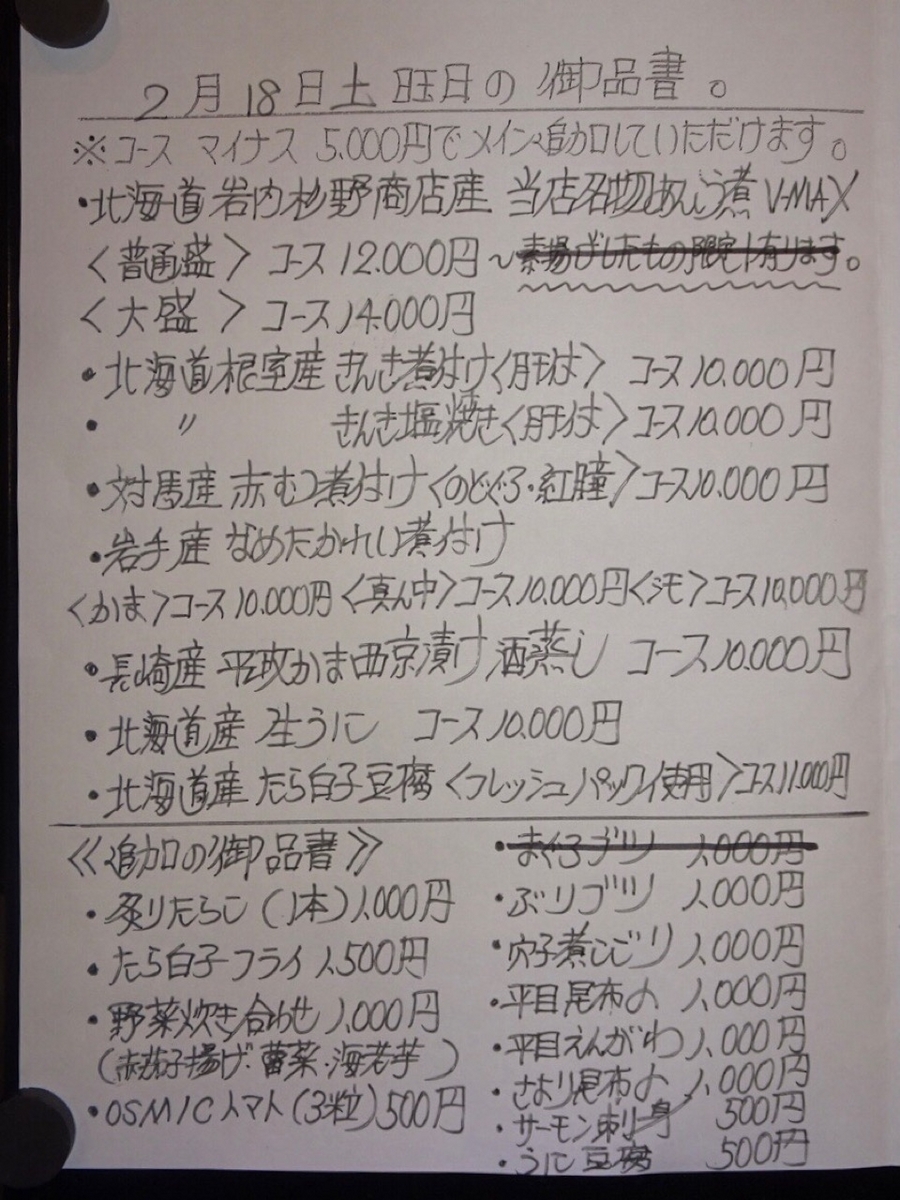 2月18日土旺日の御品書。
※コース マイナス 5.000円でメイン追加していただけます。
・北海道岩内杉野商店産 当店名物あんこう煮 V-MAX
〈普通盛〉コース12.000円〜素揚げしたもの限定十有ります。
〈大盛〉コース14.000円
・北海道根室産 きんき煮付け〈肝付〉 コース10.000円
・ 〃 きんき塩焼き〈肝付〉コース10.000円
・対馬産 赤むつ煮付け〈のどぐろ・紅瞳〉コース10.000円
・岩手産 なめたかれい煮付け
〈かま〉コース10.000円〈真ん中〉コース10.000円〈シモ〉コース10,000円
・長崎産 平政かま西京漬け 酒蒸し コース10.000円
・北海道産 生うに コース10.000円
・北海道産 たら白子豆腐〈フレッシュパック使用〉コース11.000円
《追加の御品書》
・炙りたらこ(1本)1,000円
・たら白子フライ 1,500円
・野菜炊き合わせ 1,000円
(赤茄子揚げ・曹菜・海老芋)
・OSMICトマト(3粒)500円
・まぐろブツ 1,000円
・ぶりブツ 1,000円
・穴子煮こごり 1,000円
・平目昆布〆 1,000円
・平目えんがわ 1,000円
・さより昆布〆 1,000円
・サーモン刺身 500円
・うに豆腐 500円